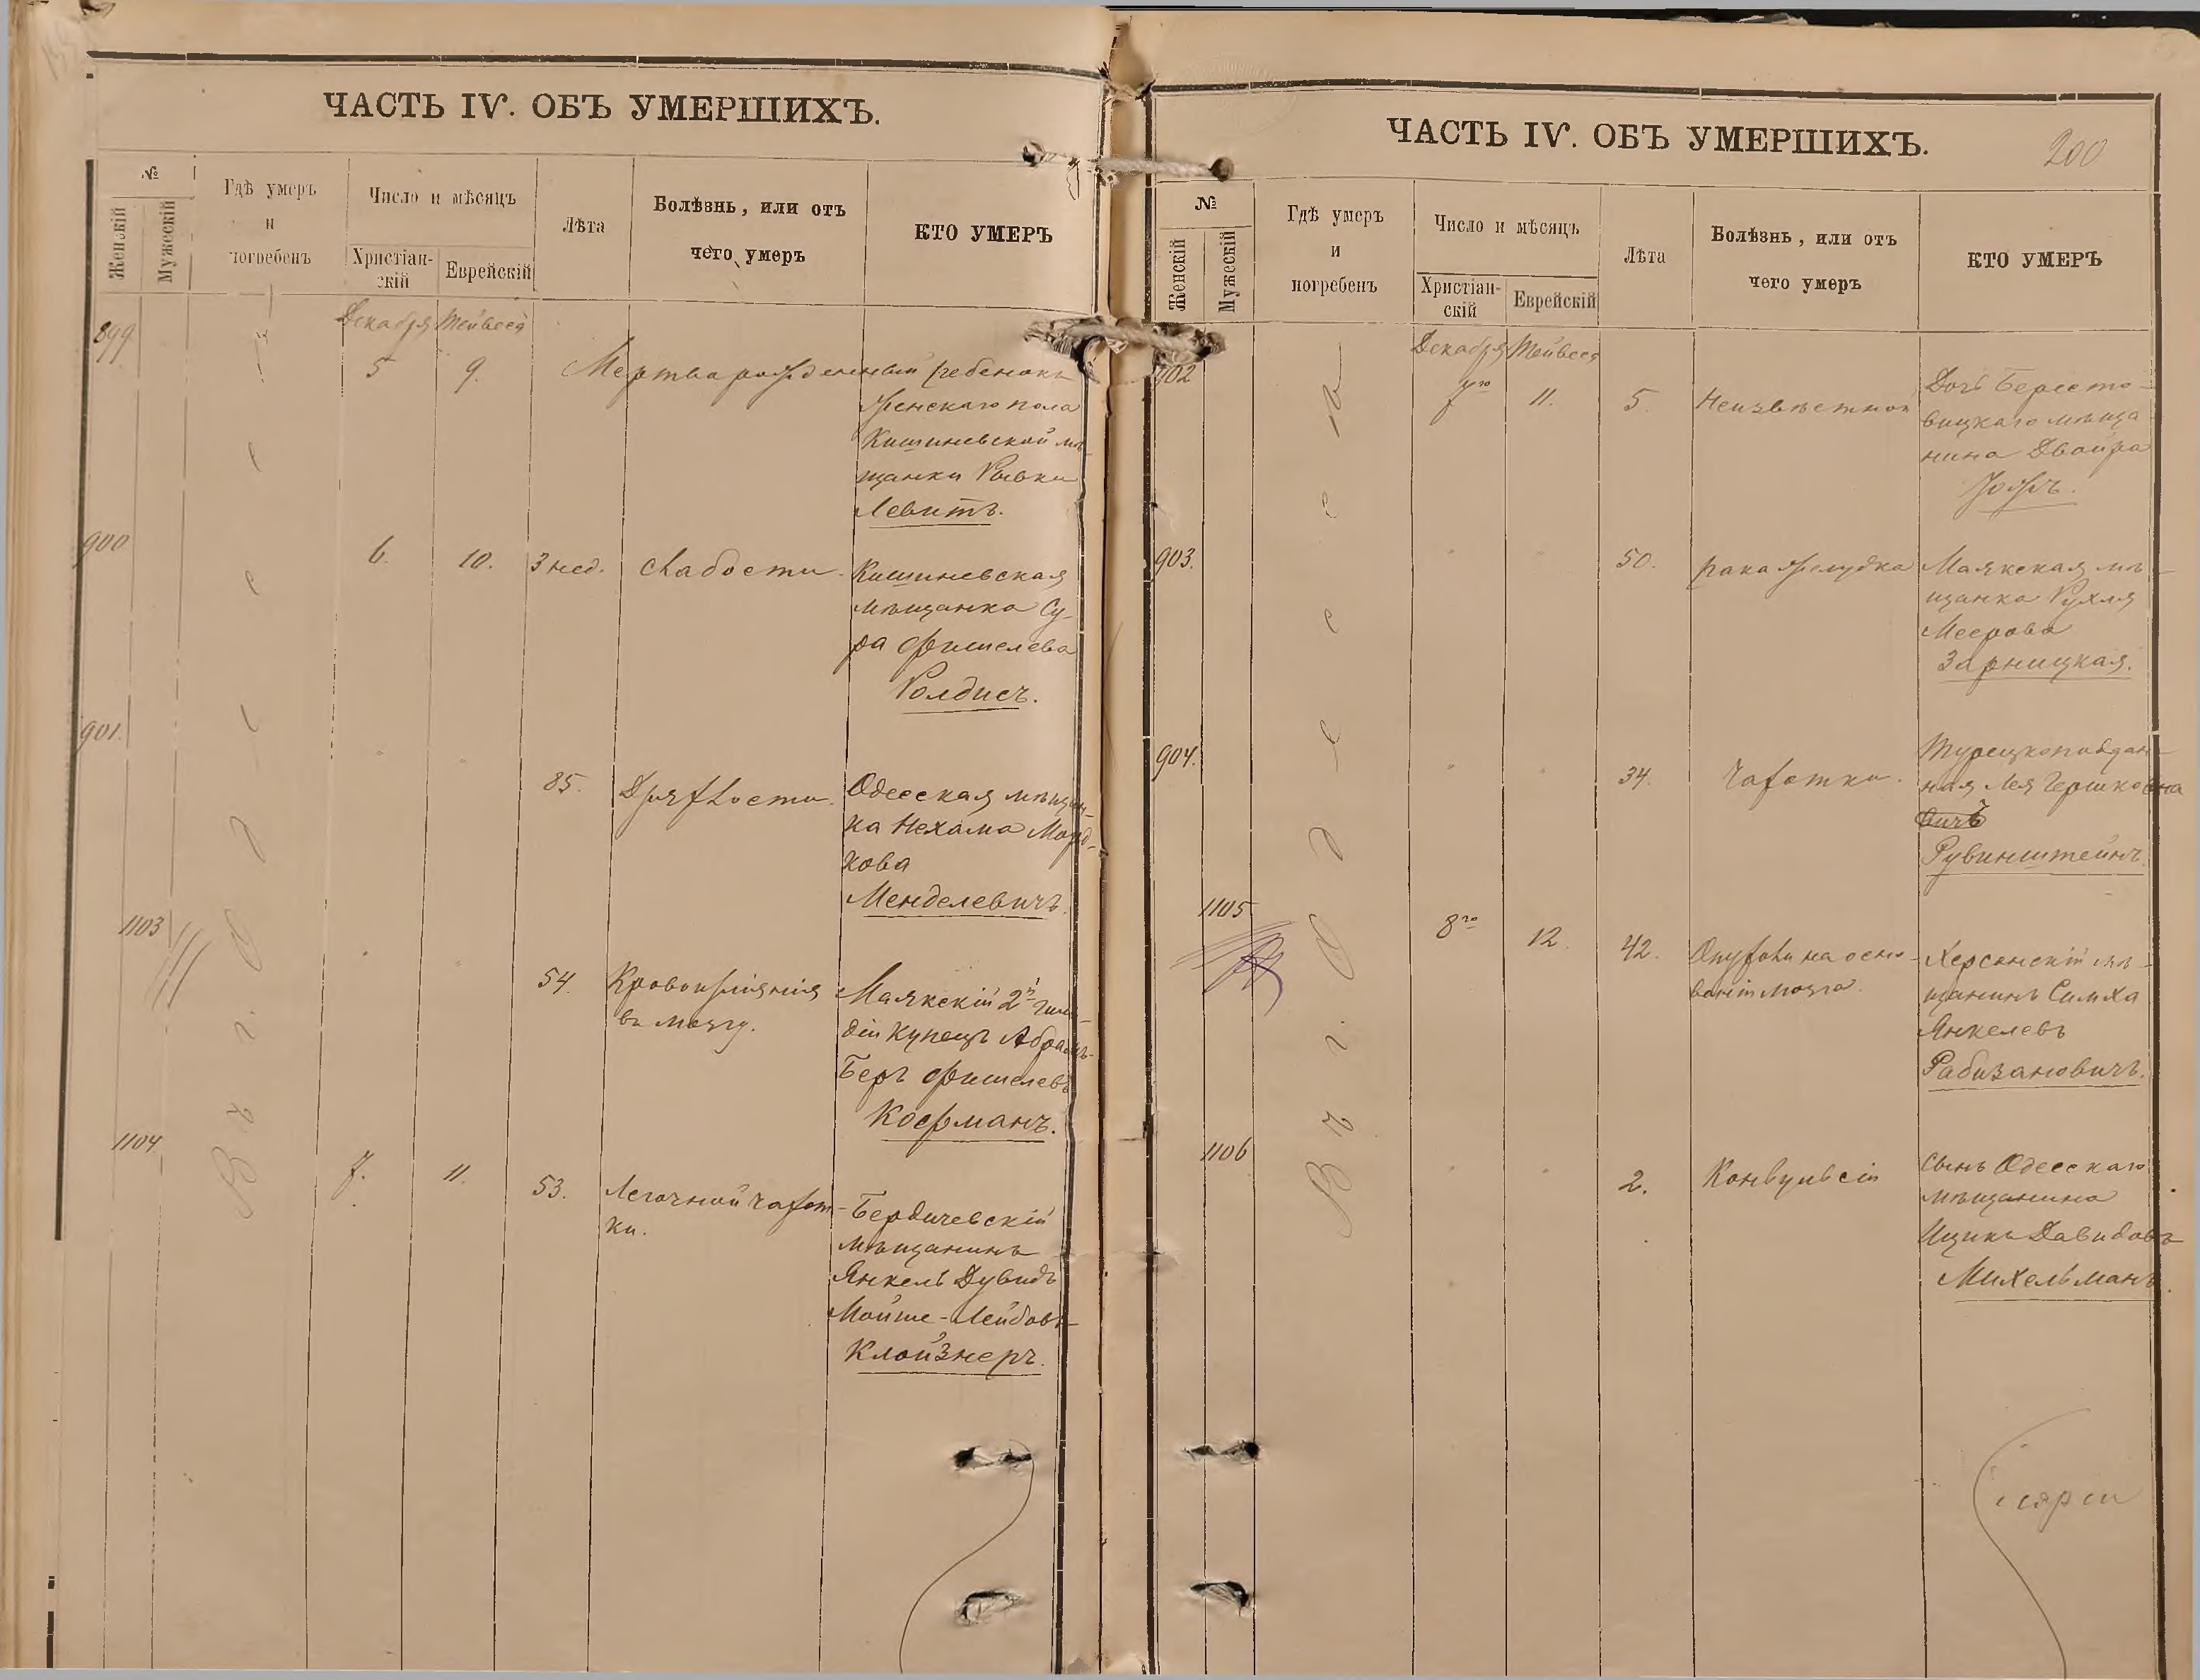 ЧАСТЬ IV. ОБЪ УМЕРШИХЪ.
№
Женскій
Мужескій
Гдѣ умеръ
и
погребенъ
Число и мѣсяцъ
Христіан-
скій
Еврейскій
Лѣта
Болѣзнь, или отъ
чего умеръ
КТО УМЕРЪ
Въ г. Одессѣ
Декабря Тейвеся
899
5 9. Мертворожденный ребенокъ
женскаго пола
Кишиневской мѣ-
щанки Рывки
Левитъ.
900 6. 10. 3 нед. слабости. Кишиневская
мѣщанка Су-
ра Фишелева
Ролдисъ.
901.
85. Дряхлости. Одесская мѣщан-
ка Нехама Морд-
кова
Менделевичъ.
1103
54. Кровоизліянія Маякскій 2й гиль-
въ мозгу. діи купецъ Абрамъ-
Беръ Фишелевъ
Кофманъ.
1104. 7. 11. 53. Легочной чахот- Бердичевскій
ки. мѣщанинъ
Янкель Дувидъ
Мойше-Лейбовъ
Клойзнеръ.
ЧАСТЬ IV. ОБЪ УМЕРШИХЪ.
200
№
Женскій
Мужескій
Гдѣ умеръ
и
погребенъ
Число и мѣсяцъ
Христіан-
скій
Еврейскій
Лѣта
Болѣзнь, или отъ
чего умеръ
КТО УМЕРЪ
Въ г. Одессѣ
Декабря Тейвеся
902 7го 11. 5. Неизвѣстной Дочь Бересто-
вицкаго мѣща
нина Двойра
903. 50. рака желудка Маякская мѣ-
щанка Рухля
Меерова
Зарницкая.
904. 34. Чахотки. Турецкоподдан-
ная Лея Гершковна
вичъ
Рувинштейнъ.
1105 8го 12. 42. Опухоли на осно- Херсонскій мѣ-
ваніи мозга. щанинъ Симха
Янкелевъ
Рабизановичъ.
1106 2. Конвульсіи Сынъ Одесскаго
мѣщанина
Ицикъ Давидовъ
Михельманъ.